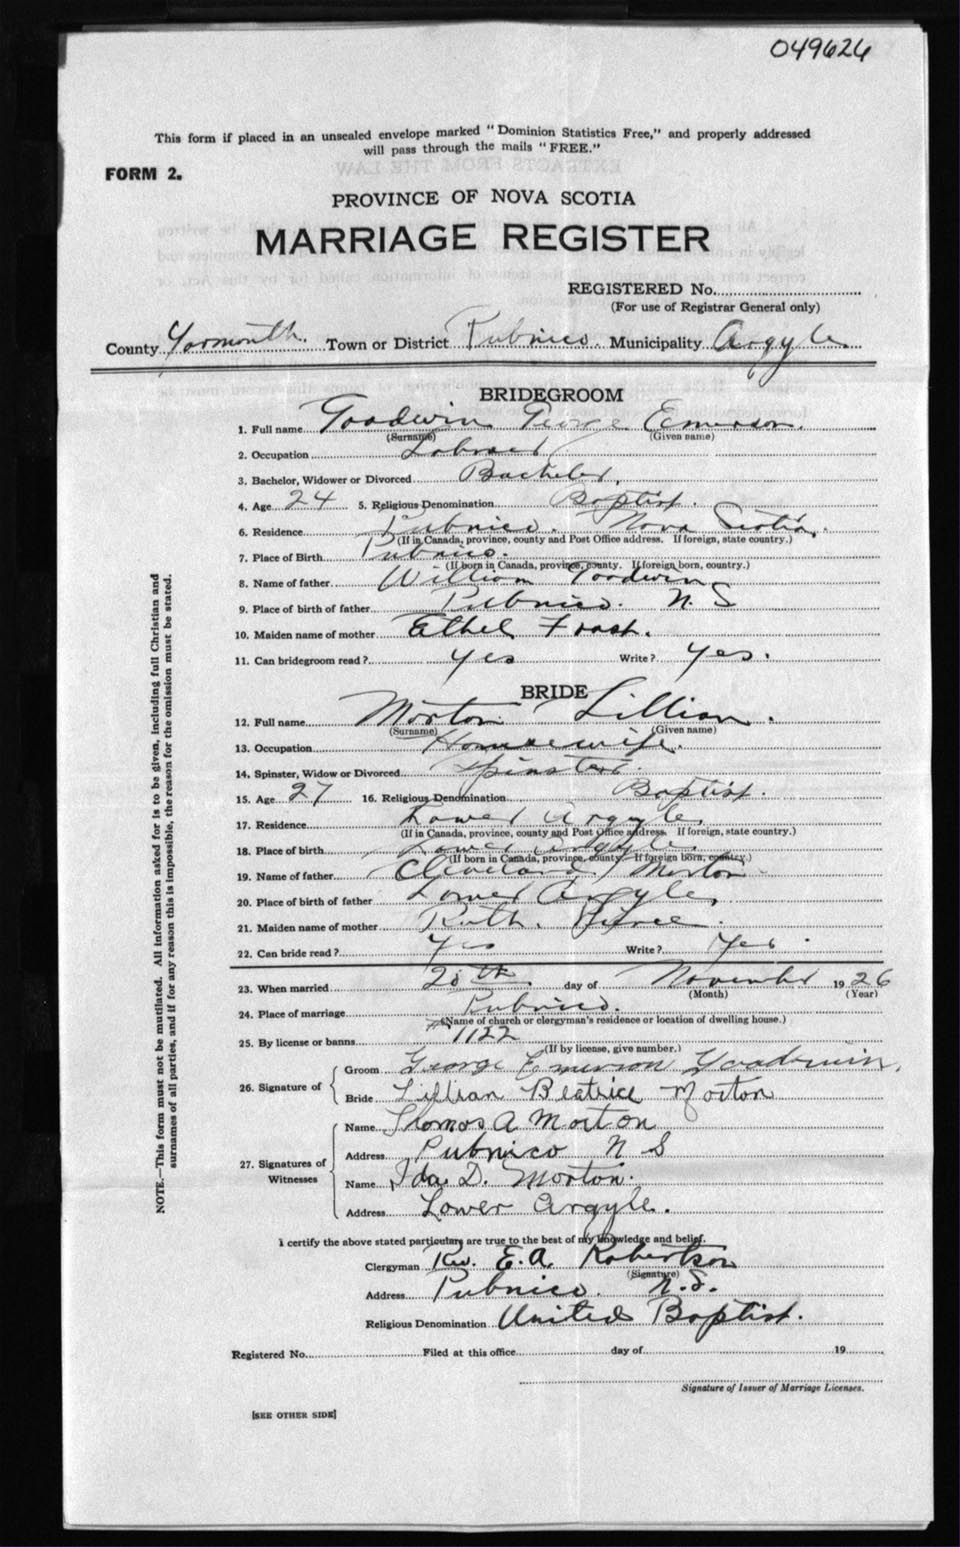 049626
This form if placed in an unsealed envelope marked "Dominion Statistics Free," and properly addressed
will pass through the mails "FREE."
FORM 2.
PROVINCE OF NOVA SCOTIA
MARRIAGE REGISTER
REGISTERED No.
(For use of Registrar General only)
County Yarmouth. Town or District Pubnico. Municipality Argyle
BRIDEGROOM
1. Full name Goodwin George Emerson.
(Surname) (Given name)
2. Occupation Laborer
3. Bachelor, Widower or Divorced Bachelor.
4. Age 24 5. Religious Denomination Baptist.
6. Residence Pubnico. Nova Scotia.
(If in Canada, province, county and Post Office address. If foreign, state country.)
7. Place of Birth Pubnico.
(If born in Canada, province, county. If foreign born, country.)
8. Name of father William Goodwin
9. Place of birth of father Pubnico. N. S
10. Maiden name of mother Ethel
11. Can bridegroom read? yes Write? yes.
BRIDE
12. Full name Morton Lillian.
(Surname) (Given name)
13. Occupation Housewife.
14. Spinster, Widow or Divorced Spinster.
15. Age 27 16. Religious Denomination Baptist.
17. Residence Lower Argyle.
(If in Canada, province, county and Post Office address. If foreign, state country.)
18. Place of birth Lower Argyle.
(If born in Canada, province, county. If foreign born, country.)
19. Name of father Cleveland Morton
20. Place of birth of father Lower Argyle.
21. Maiden name of mother Ruth.
22. Can bride read? Yes Write? Yes.
23. When married 20th day of November 1926
(Month) (Year)
24. Place of marriage Pubnico.
(Name of church or clergyman's residence or location of dwelling house.)
25. By license or banns 1122
(If by license, give number.)
26. Signature of Groom George Emerson Goodwin.
Bride Lillian Beatrice Morton
27. Signatures of Witnesses
Name Thomas A Morton
Address Pubnico N S
Name Ida. D. Morton.
Address Lower Argyle.
I certify the above stated particulars are true to the best of my knowledge and belief.
Clergyman Rev. E. A. Robertson
(Signature)
Address Pubnico. N. S.
Religious Denomination United Baptist.
Registered No. Filed at this office day of 19
Signature of Issuer of Marriage Licenses.
[SEE OTHER SIDE]
NOTE.—This form must not be mutilated. All information asked for is to be given, including full Christian and
surnames of all parties, and if for any reason this is impossible, the reason for the omission must be stated.